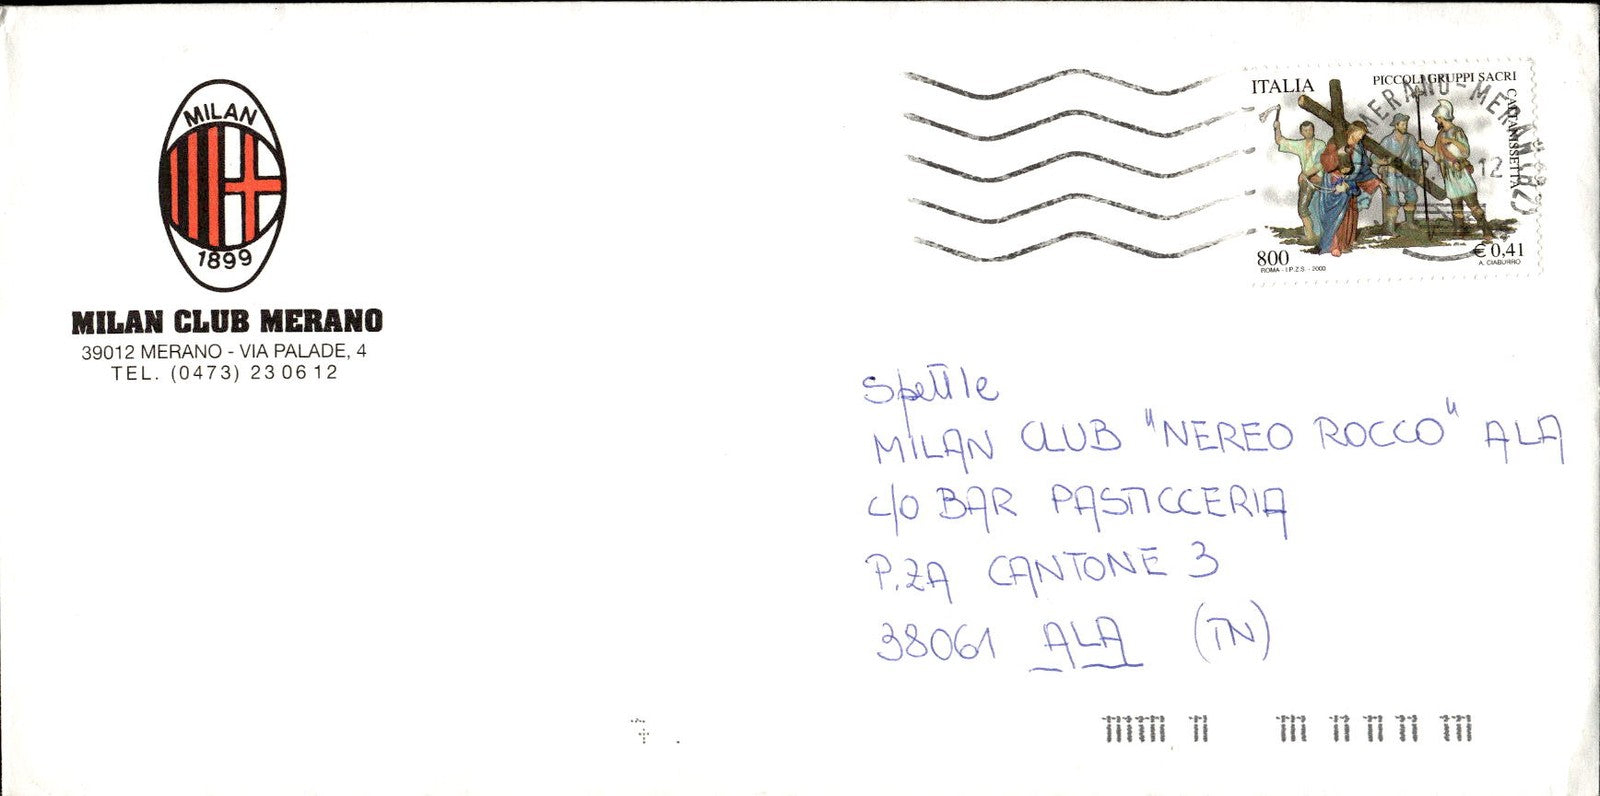 MILAN
1899
MILAN CLUB MERANO
39012 MERANO - VIA PALADE, 4
TEL. (0473) 23 06 12
ITALIA
PICCOLI GRUPPI SACRI
CALTANISSETTA
800
€ 0,41
ROMA - I.P.Z.S. - 2000
A. CIABURRO
MERANO - MERAN
12
Spettle
MILAN CLUB "NEREO ROCCO" ALA
c/o BAR PASTICCERIA
P.ZA CANTONE 3
38061 ALA (TN)